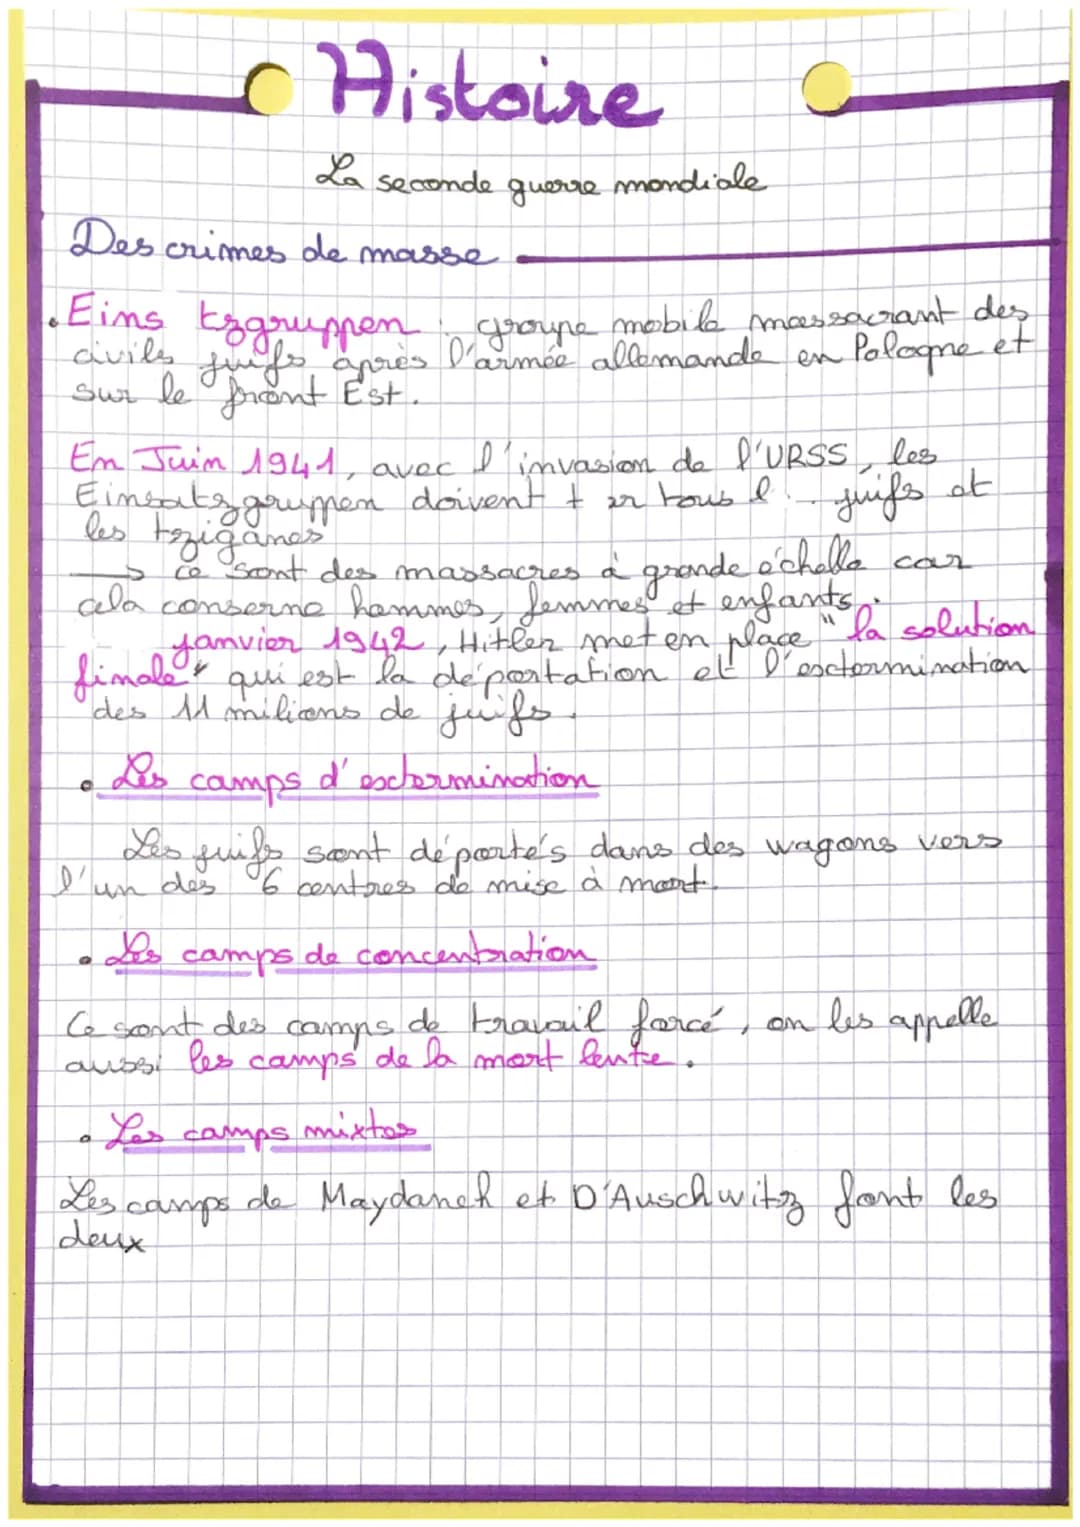 Histoire
La seconde guerre mondiale
Des crimes de masse
. Eins tzgruppen : groupe mobile massacrant des
civils juifs après l'armée allemande en Pologne et
sur le front Est.
En Juin 1941, avec l'invasion de l'URSS, les
Einsatzgruppen doivent tous juifs et
les tziganes
→ ce sont des massacres à grande échelle car
cela conserne hommes, femmes et enfants.
janvier 1942, Hitler met en place "la solution
finale" qui est la déportation et l'esctermination
des 11 milions de juifs.
• Les camps d'esctermination
Les juifs sont déportés dans des wagons vers
l'un des 6 centres de mise à mort.
• Les camps de concentration
Ce sont des camps de travail forcé, on les appelle
aussi les camps de la mort lente.
• Les camps mixtes
Les camps de Maydaneh et D'Auschwitz font les
deux